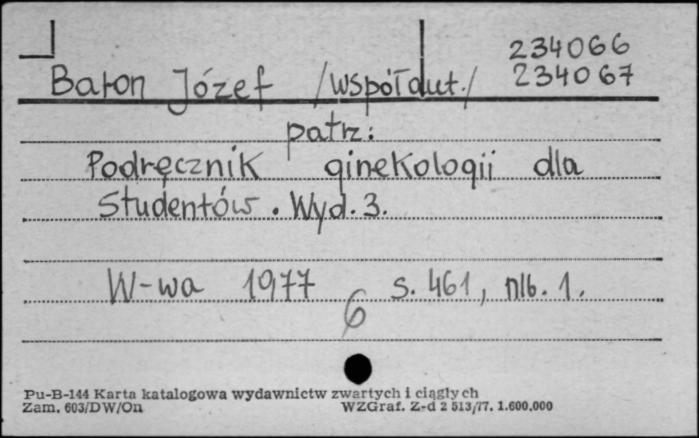 234066
Baron Józef /współaut./ 234067
patrz:
Podręcznik ginekologii dla
Studentów. Wyd. 3.
W-wa 1977 s. 461, nlb. 1.
6
Pu-B-144 Karta katalogowa wydawnictw zwartych i ciągłych
Zam. 603/DW/On WZGraf. Z-d 2 513/77. 1.600.000